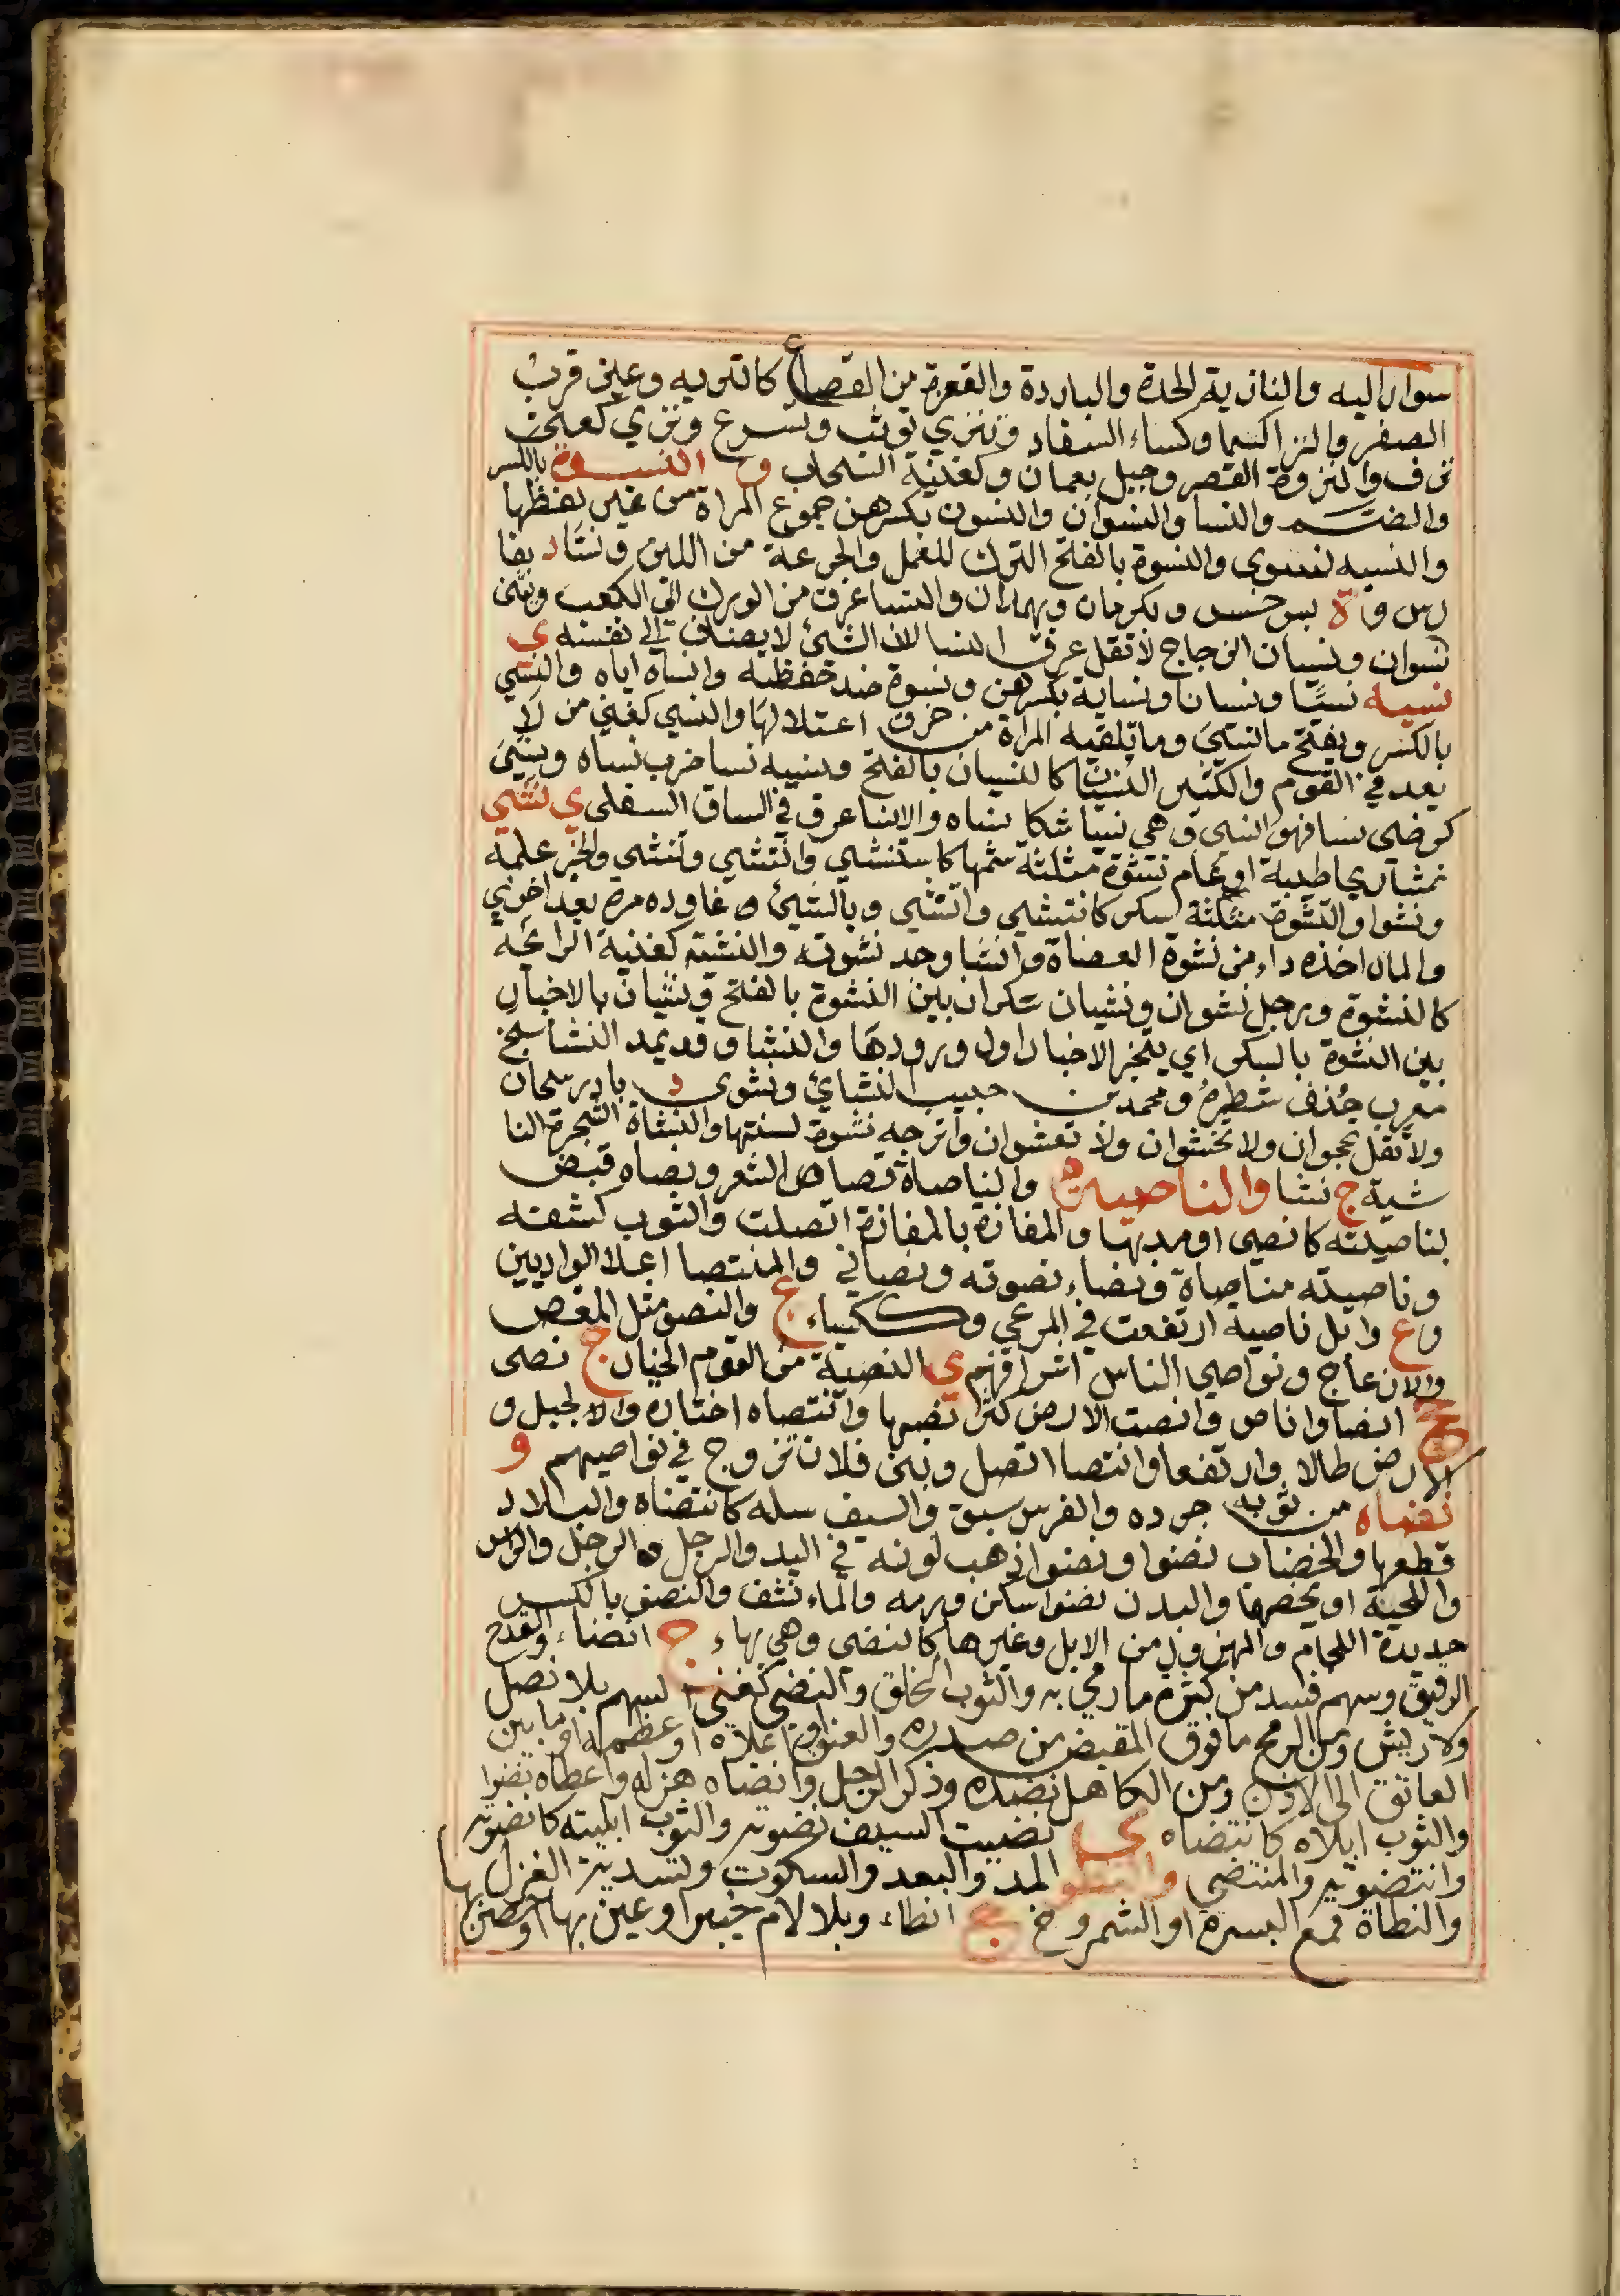 سوار اليه والنازية الحدة والبادرة والقعرة من القصاع كالنزيه وعين قرب
الصفر والنزا كسما وكساء السفاد وتنزي توثب وتسرع ونزي كعني
نزف والنزوة القصر وجبل بعمان وكغنية السحاب و النسوة بالكسر
والضم والنسا والنسوان والنسون بكسرهن جموع المراة من غير لفظها
والنسبه نسوي والنسوة بالفتح الترك للعمل والجرعة من اللبن ونسا د بفا
رس و ة بسرخس وبكرمان وبهمدان والنسا عرق من الورك الى الكعب ويثنى
نسوان ونسيان الزجاج لا تقل عرق النسا لان الشئ لا يضاف الى نفسه ي
نسيه نسيا ونسيانا ونساية بكسرهن ونسوة ضد حفظه وانساه اياه والنسي
بالكسر ويفتح ما نسي وما تلقيه المراة من خرق اعتلالها والنسي كغني من لا
يعد في القوم والكثير النسيان كالنسيان بالفتح ونسيه نسا ضرب نساه ونسي
كرضى نسا فهو انسى وهي نسيا شكا نساه والانسا عرق في الساق السفلى ي نشي
نشا ريحا طيبة او عام نشوة مثلثة شمها كاستنشى وانتشى وتنشى والخبر علمه
ونشوا والنشوة مثلثة سكر كانتشى وانتشى وبالشئ عاوده مرة بعد اخرى
والمال اخذه داء من نشوة العضاة وانشا وجد نشوته والنشيه كغنية الرائحه
كالنشوة ورجل نشوان ونشيان سكران بين النشوة بالفتح ونشيان بالاخبار
بين النشوة بالكسر اي يتخبر الاخبار اول ورودها والنشا وقد يمد النشاستج
معرب حذف شطره ومحمد بن حبيب النشائ ونشوى د باذربيجان
ولا تقل نخجوان ولا نخشوان وتنشوان واترجه نشوة لسنتها والنشاة الشجرة اليا
بسة ج نشا والناصية والناصاة قصاص الشعر ونصاه قبض
بناصيته كانصى او مدبها والمفازة بالمفازة اتصلت والثوب كشفته
وناصيته مناصاة ونصاء نصوته ونصاني والمنتصا اعلا الواديين
وع وابل ناصية ارتفعت في المرعي وككساء ع والنصو مثل المغص
والانزعاج ونواصي الناس اشرافهم ي النصية من القوم الخيار ج نصى
جج انصا وانا ص وانصت الارض كثر نصيها وانتصاه اختاره والجبل و
الارض طالا وارتفعا وانتصا اتصل وبني فلان تزوج في نواصيهم و
نضاه من ثوبه جرده والفرس سبق والسيف سله كانتضاه والبلاد
قطعها والخضاب نضوا ونضوا ذهب لونه في اليد والرجل والراس
واللحية او يخصهما والبدن نضوا سكن ورمه والماء نشف والنضو بالكسر
حديدة اللجام والمهزول من الابل وغيرها كالنضى وهي بهاء ج انضاء والقدح
الرقيق وسهم فسد من كثرة ما رمي به والثوب الخلق والنضي كغني السهم بلا نصل
ولا ريش ومن الرمح ما فوق المقبض من صدره والعنق او اعلاه او عظمه او ما بين
العاتق الى الاذن ومن الكاهل نضده وذكر الرجل وانضاه هزله واعطاه نضوا
والثوب ابلاه كانتضاه ي نضيت السيف نضوته والثوب ابليته كانضوته
وانتضوته والمنتضي والنطو المد والبعد والسكوت وتسدية الغزل بها
والنطاة قمع البسرة او الشمروخ ج انطاء وبلا لام خيبر او عين بها او حصن بها